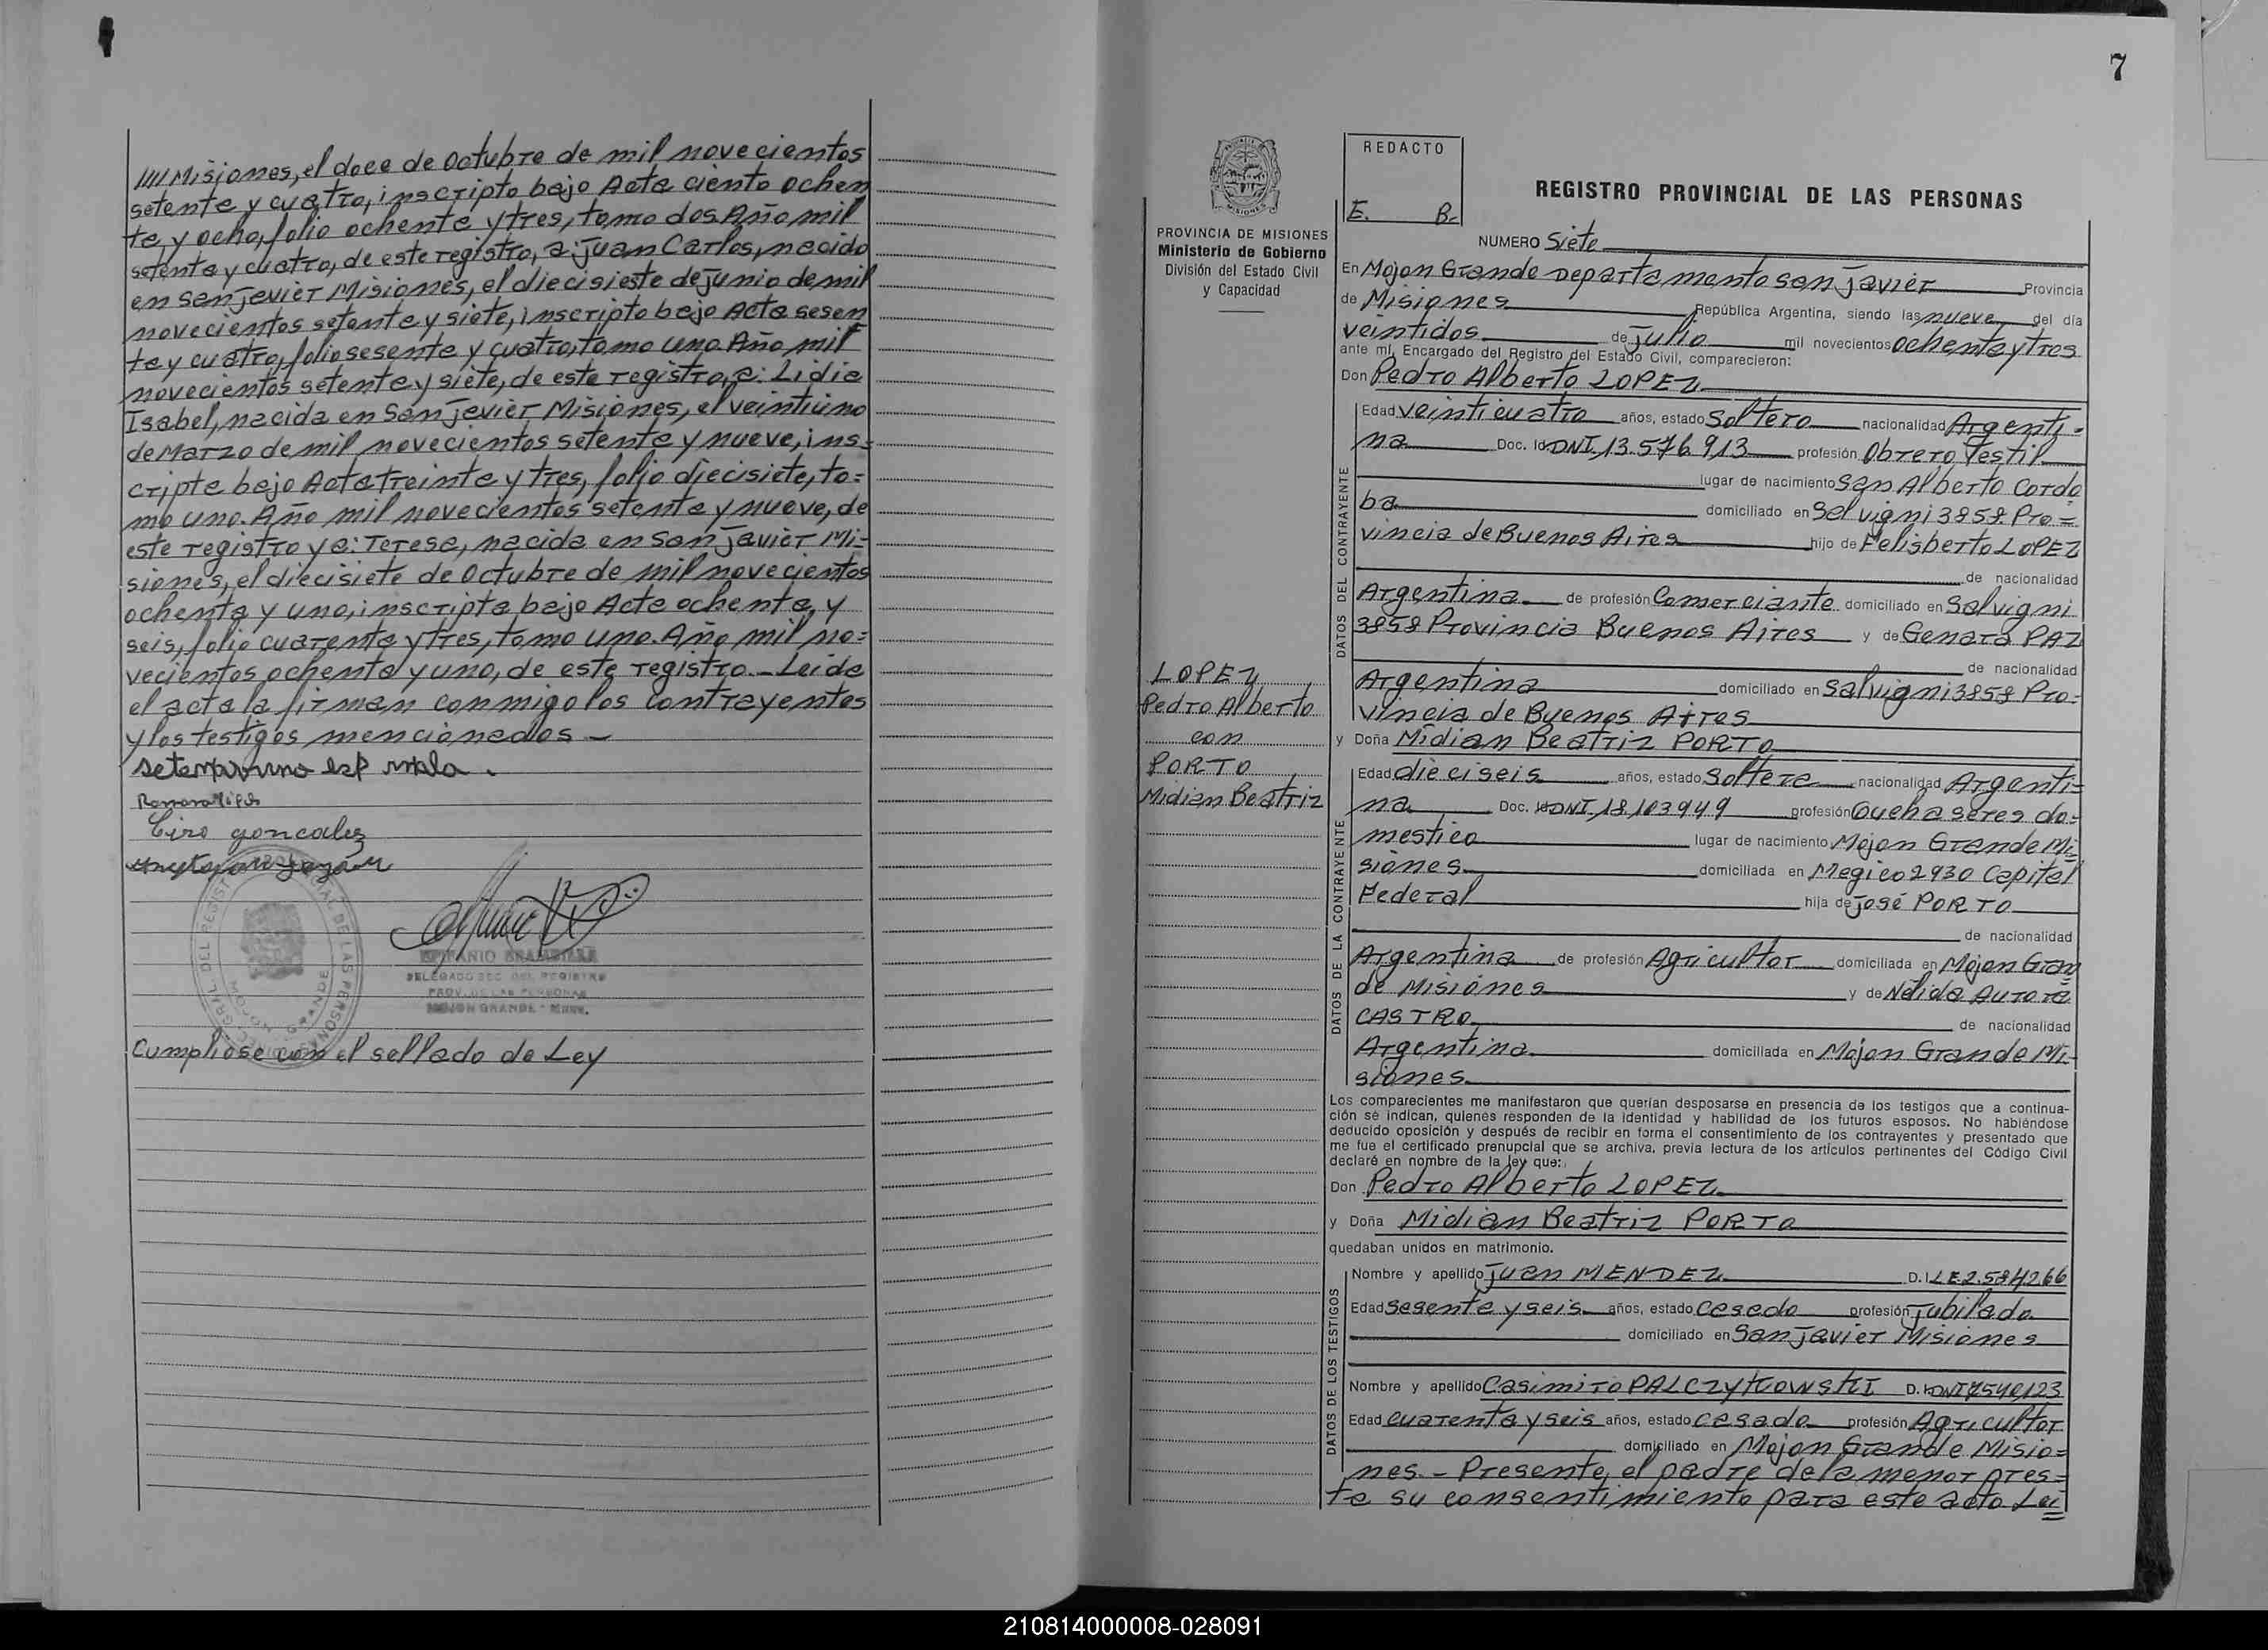 //// Misiones, el doce de Octubre de mil novecientos
setenta y cuatro, inscripto bajo Acta ciento ochen
ta y ocho, folio ochenta y tres, tomo dos. Año mil
setenta y cuatro, de este registro, a: Juan Carlos, nacido
en San Javier Misiones, el diecisiete de Junio de mil
novecientos setenta y siete, inscripto bajo Acta sesen
ta y cuatro, folio sesenta y cuatro, tomo uno. Año mil
novecientos setenta y siete, de este registro, a: Lidia
Isabel, nacida en San Javier Misiones, el veintiuno
de Marzo de mil novecientos setenta y nueve, ins=
cripta bajo Acta treinta y tres, folio diecisiete, to=
mo uno. Año mil novecientos setenta y nueve, de
este registro y a: Teresa, nacida en San Javier Mi=
siones, el diecisiete de Octubre de mil novecientos
ochenta y uno, inscripta bajo Acta ochenta y
seis, folio cuarenta y tres, tomo uno. Año mil no=
vecientos ochenta y uno, de este registro. - Leida
el acta la firman conmigo los contrayentes
y los testigos mencionados -
Ciro goncalez
DELEGADO SEC. DEL REGISTRO
PROV. DE LAS PERSONAS
MOJON GRANDE - Mnes.
Cumpliose con el sellado de Ley
7
REDACTO
E. B.
REGISTRO PROVINCIAL DE LAS PERSONAS
PROVINCIA DE MISIONES
Ministerio de Gobierno
División del Estado Civil
y Capacidad
LOPEZ
Pedro Alberto
con
PORTO
Midian Beatriz
NUMERO Siete
En Mojon Grande Departamento San Javier Provincia
de Misiones República Argentina, siendo las nueve del día
veintidos de Julio mil novecientos ochenta y tres
ante mí, Encargado del Registro del Estado Civil, comparecieron:
Don Pedro Alberto LOPEZ
DATOS DEL CONTRAYENTE
Edad veinticuatro años, estado Soltero nacionalidad Argenti=
na Doc. Id. DNI. 13.576.913 profesión Obrero Testil
lugar de nacimiento San Alberto Cordo
ba domiciliado en Salvigni 3858 Pro=
vincia de Buenos Aires hijo de Felisberto LOPEZ
de nacionalidad
Argentina de profesión Comerciante domiciliado en Salvigni
3858 Provincia Buenos Aires y de Genara PAZ
de nacionalidad
Argentina domiciliado en Salvigni 3858 Pro=
vincia de Buenos Aires
y Doña Midian Beatriz PORTO
DATOS DE LA CONTRAYENTE
Edad dieciseis años, estado Soltera nacionalidad Argenti=
na Doc. Id. DNI. 18.103949 profesión Quehaseres do=
mestica lugar de nacimiento Mojon Grande Mi=
siones domiciliada en Megico 2930 Capital
Federal hija de José PORTO
de nacionalidad
Argentina de profesión Agricultor domiciliada en Mojon Gran
de Misiones y de Nélida Aurora
CASTRO de nacionalidad
Argentina domiciliada en Mojon Grande Mi=
siones
Los comparecientes me manifestaron que querían desposarse en presencia de los testigos que a continua-
ción se indican, quienes responden de la identidad y habilidad de los futuros esposos. No habiéndose
deducido oposición y después de recibir en forma el consentimiento de los contrayentes y presentado que
me fue el certificado prenupcial que se archiva, previa lectura de los artículos pertinentes del Código Civil
declaré en nombre de la ley que:
Don Pedro Alberto LOPEZ
y Doña Midian Beatriz PORTO
quedaban unidos en matrimonio.
DATOS DE LOS TESTIGOS
Nombre y apellido Juan MENDEZ D.I. LE 2.584266
Edad sesenta y seis años, estado casado profesión Jubilado
domiciliado en San Javier Misiones
Nombre y apellido Casimiro PALCZYKOWSKI D.I. DNI 7540,123
Edad cuarenta y seis años, estado casado profesión Agricultor
domiciliado en Mojon Grande Misio=
nes. - Presente, el padre de la menor pres=
ta su consentimiento para este acto Lei
210814000008-028091